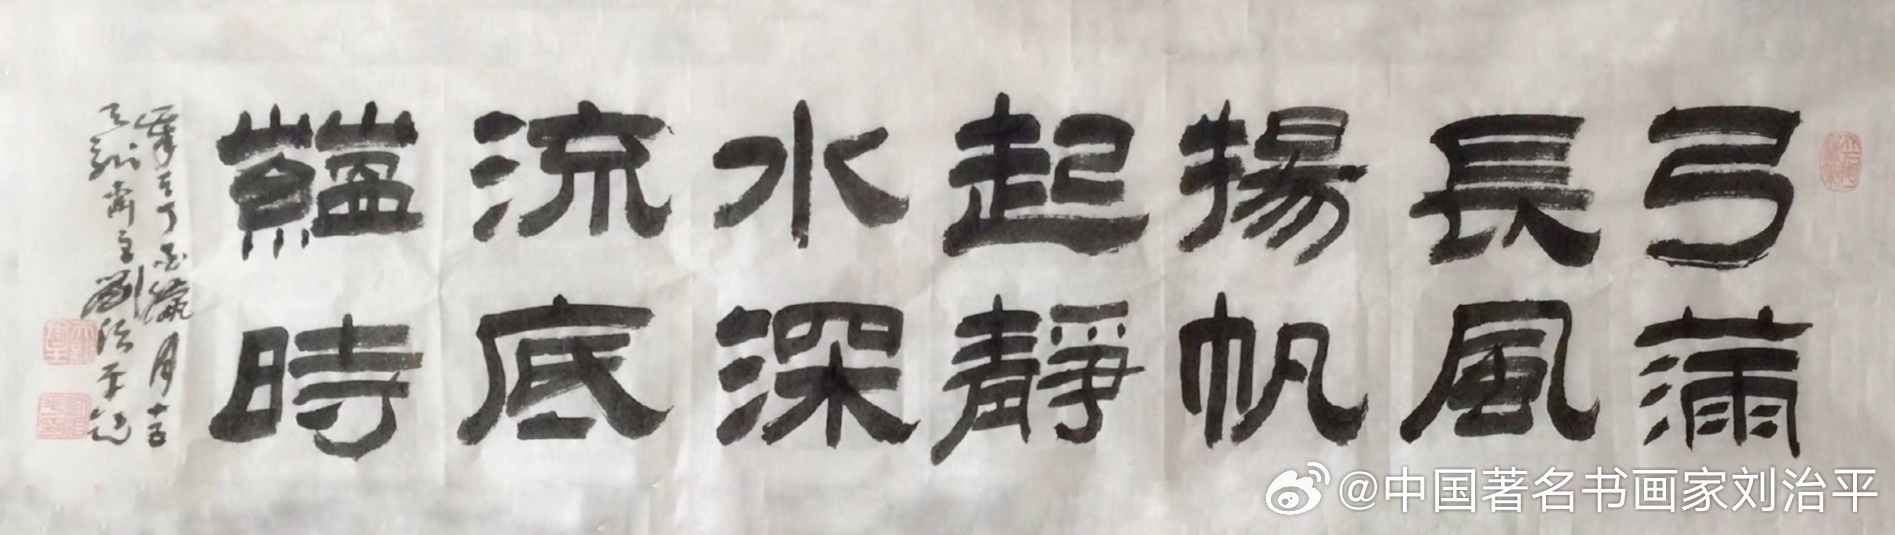 弓滿
長風
揚帆
起靜
水深
流底
蘊時
丁酉
主劉治平題
@中国著名书画家刘治平